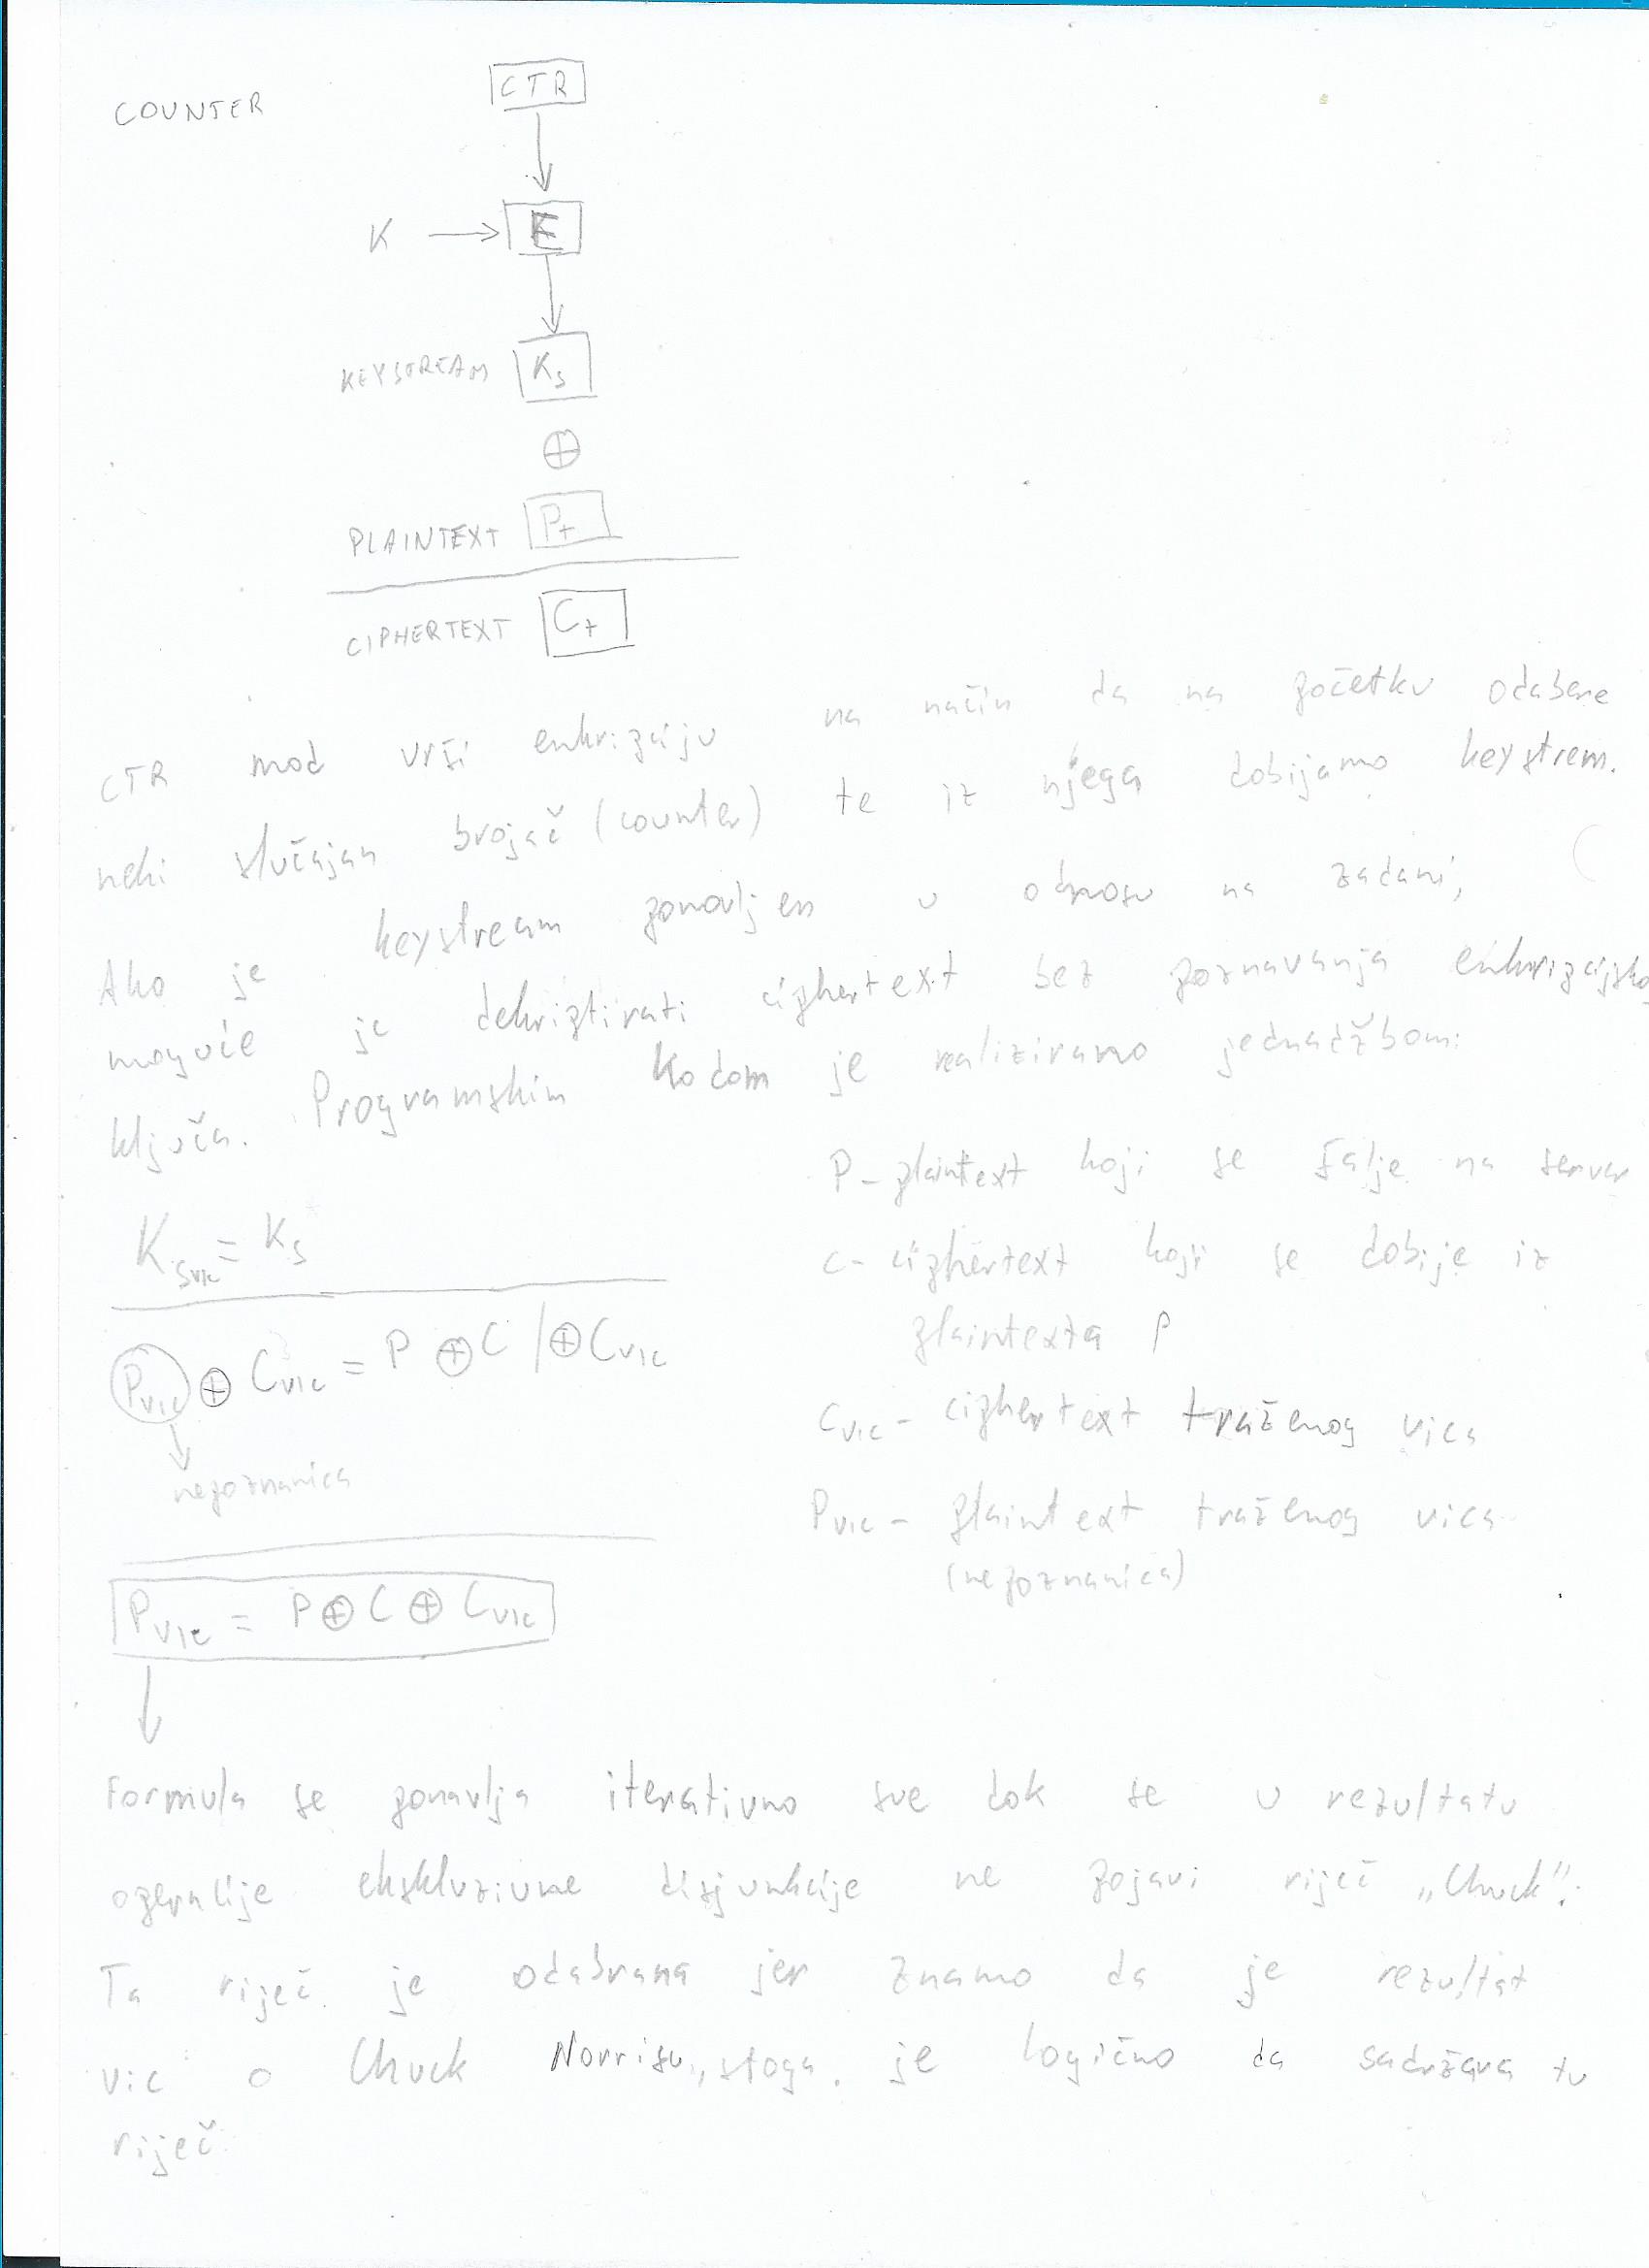 COUNTER
CTR
K → E
KEYSTREAM Ks
⊕
PLAINTEXT Pt
CIPHERTEXT Ct
CTR mod vrši enkripciju na način da na početku odabere
neki slučajan brojač (counter) te iz njega dobijamo keystrem.
Ako je keystream ponovljen u odnosu na zadani,
moguće je dekriptirati ciphertext bez poznavanja enkripcijsko
ključa. Programskim kodom je realizirano jednadžbom:
Ksvic = Ks
Pvic ⊕ Cvic = P ⊕ C /⊕ Cvic
nepoznanica
Pvic = P ⊕ C ⊕ Cvic
P - plaintext koji se šalje na server
C - ciphertext koji se dobije iz
plaintexta P
Cvic - ciphertext traženog vica
Pvic - plaintext traženog vica
(nepoznanica)
Formula se ponavlja iterativno sve dok se u rezultatu
operacije ekskluzivne disjunkcije ne pojavi riječ „Chuck".
Ta riječ je odabrana jer znamo da je rezultat
vic o Chuck Norrisu, stoga je logično da sadržava tu
riječ.